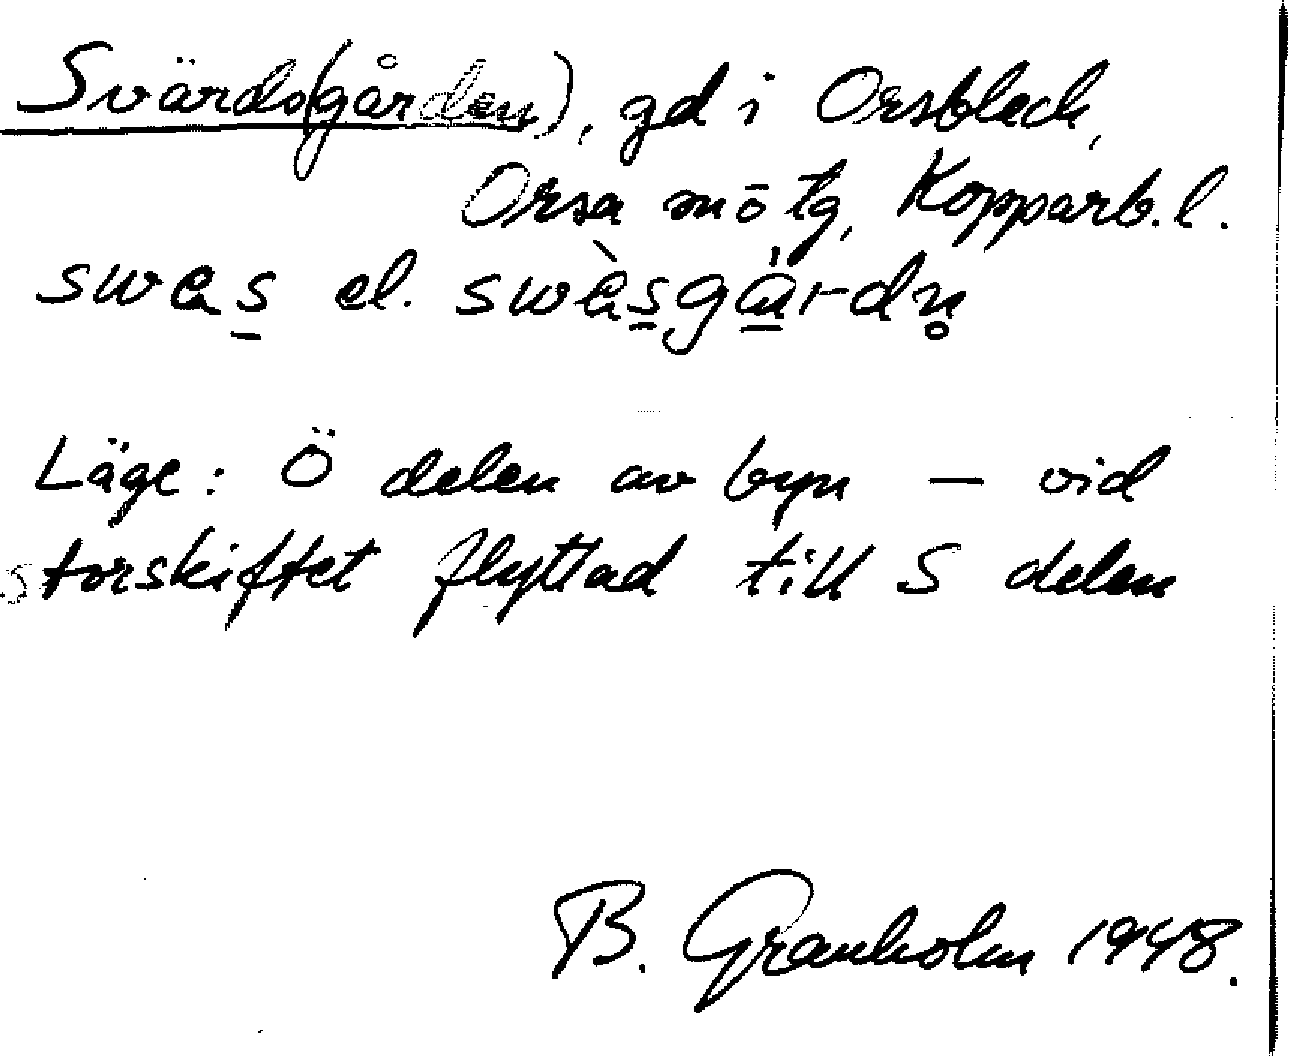 Svärds(gården), gd i Orsbleck,
Orsa mō tg, Kopparb. l.
swes el. swèsgårdn̥
Läge: Ö delen av byn — vid
storskiftet flyttad till S delen
B. Granholm 1948.